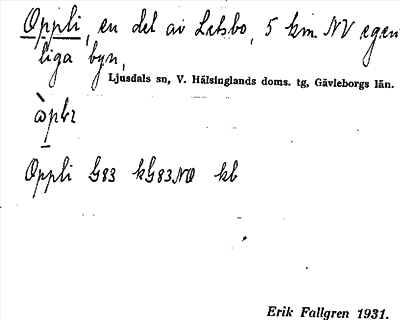 Oppli, en del av Letsbo, 5 km. NV egen
liga byn,
Ljusdals sn, V. Hälsinglands doms. tg, Gävleborgs län.
Oppli G83 kG83NO kb
Erik Fallgren 1931.